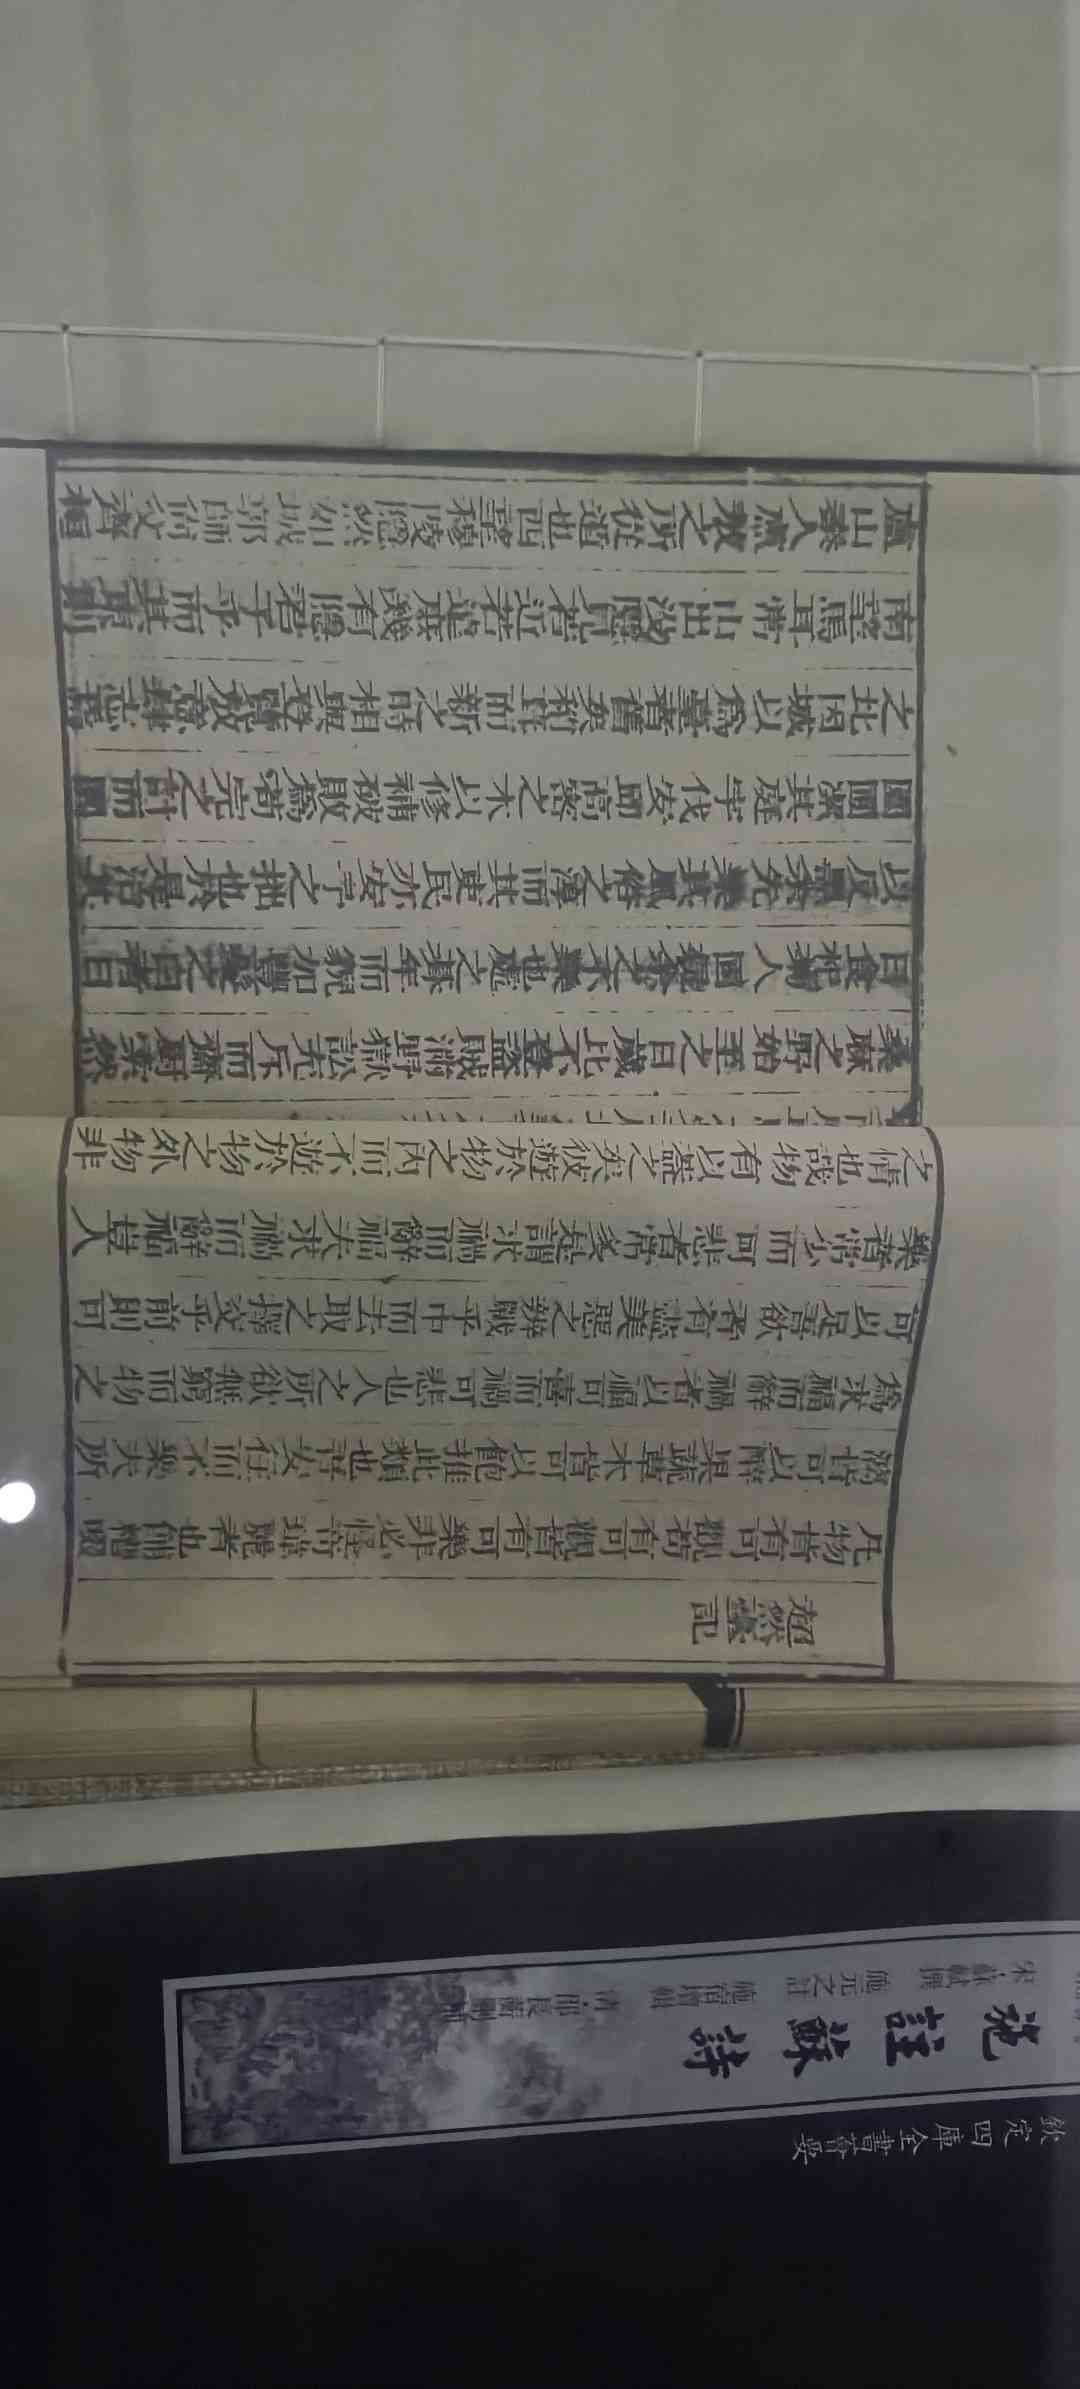 超然臺記
凡物皆有可觀苟有可觀皆有可樂非必怪奇瑋麗者也餔糟啜
醨皆可以醉果蔬草木皆可以飽推此類也吾安往而不樂夫所
為求福而辭禍者以福可喜而禍可悲也人之所欲無窮而物之
可以足吾欲者有盡美惡之辨戰乎中而去取之擇交乎前則可
樂者常少而可悲者常多是謂求禍而辭福夫求禍而辭福豈人
之情也哉物有以蓋之矣彼遊於物之內而不遊於物之外物非
桑麻之野始至之日歲比不登盜賊滿野獄訟充斥而齋廚索然
日食杞菊人固疑余之不樂也處之期年而貌加豐髮之白者日
以反黑余既樂其風俗之淳而其吏民亦安予之拙也於是治其
園圃潔其庭宇伐安邱高密之木以修補破敗為苟完之計而園
之北因城以為臺者舊矣稍葺而新之時相與登覽放意肆志焉
南望馬耳常山出沒隱見若近若遠庶幾有隱君子乎而其東則
盧山秦人盧敖之所從遁也西望穆陵隱然如城郭師尚父齊桓
欽定四庫全書薈要
施註蘇詩
宋 蘇軾撰 施元之註 施宿 清 邵長蘅刪補